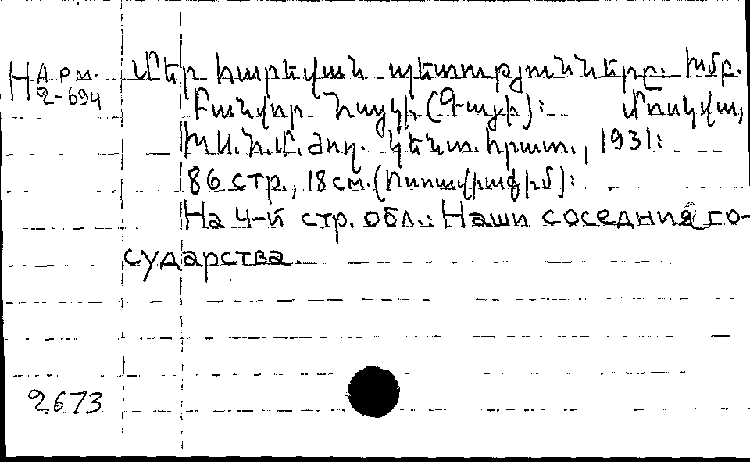 Н Арм.
2-694
Մեր հարեվան պետությունները. Խմբ.
Բանվոր Հայկի (Գայի): Մոսկվա,
Խ.Ս.Հ.Մ. ժող. կենտ. հրատ., 1931:
86 стр., 18 см. (Ռադիոֆիմ):
На 4-й стр. обл.: Наши соседния го-
сударства.
2673